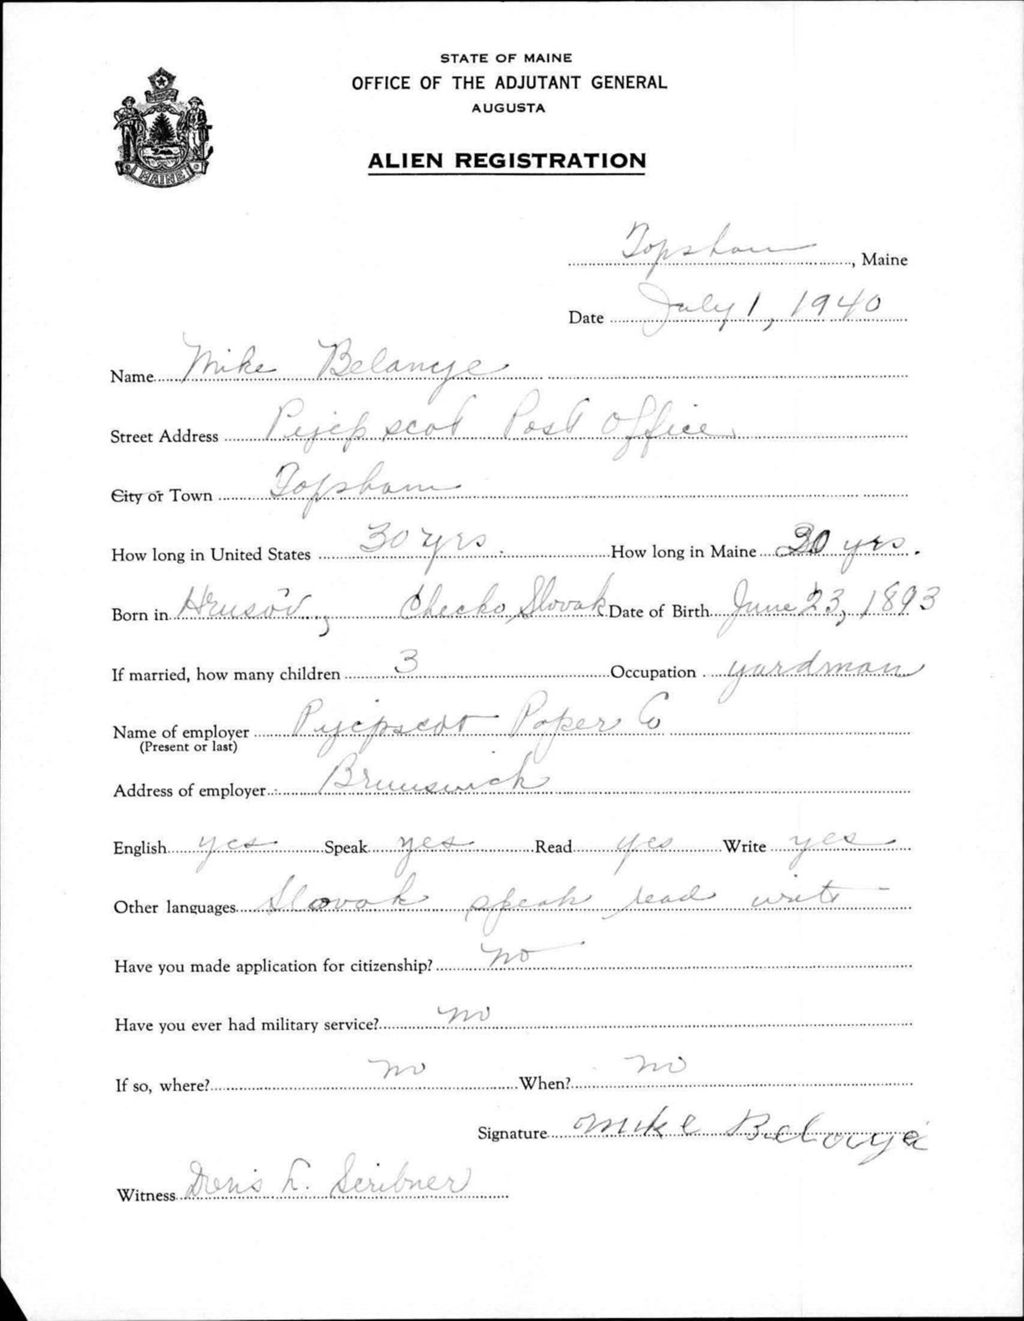 STATE OF MAINE
OFFICE OF THE ADJUTANT GENERAL
AUGUSTA
MAINE
ALIEN REGISTRATION
Topsham, Maine
Date July 1, 1940
Name Mike Belanye
Street Address Pejepscot Post Office
City or Town Topsham
How long in United States 30 yrs. How long in Maine 30 yrs.
Born in Hrusov, Checko Slovak Date of Birth June 23, 1893
If married, how many children 3 Occupation yardman
Name of employer Pejepscot Paper Co
(Present or last)
Address of employer Brunswick
English yes Speak yes Read yes Write yes
Other languages Slovak speak read write
Have you made application for citizenship? no
Have you ever had military service? no
If so, where? no When? no
Signature Mike
Witness Doris L. Scribner